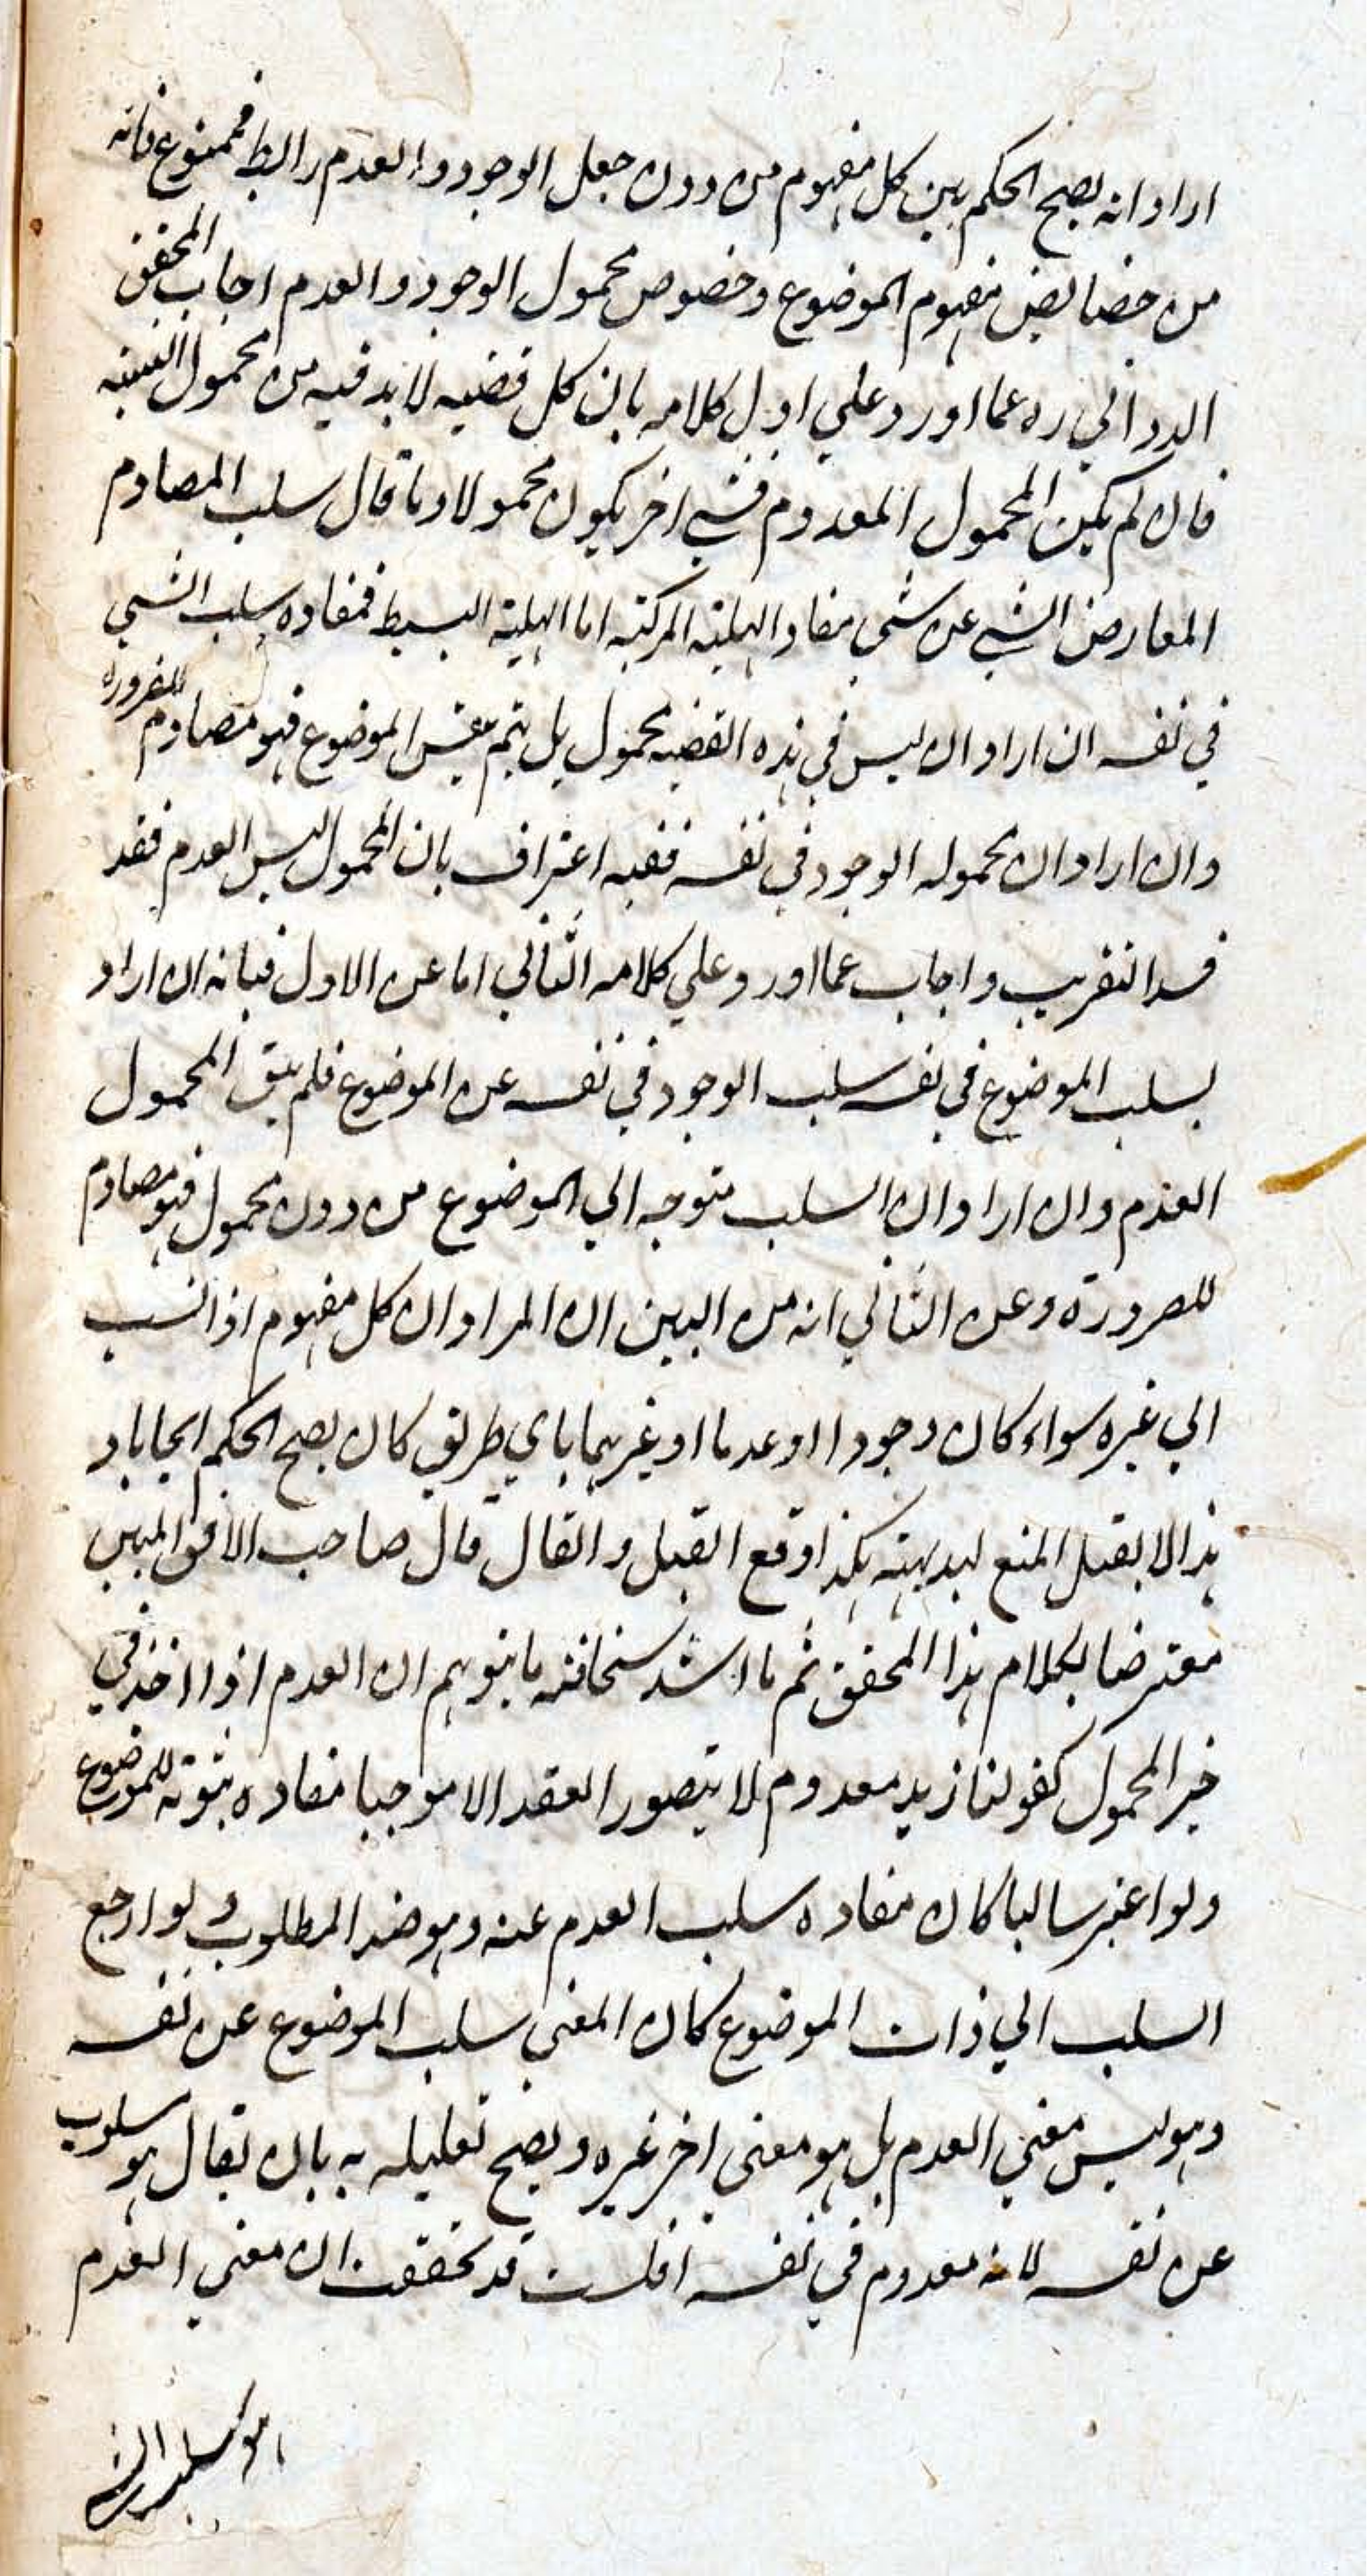 اراد انه يصح الحكم بين كل مفهوم من دون جعل الوجود والعدم رابط فممنوع فانه
من خصايص مفهوم الموضوع وخصوص محمول الوجود والعدم اجاب المحقق
الدواني ره عما اورد علي اول كلامه بان كل قضيه لا بد فيه من محمول
فان لم يكن المحمول المعدوم فشي اخر يكون محمولا وما قال سلب المصادم
المعارض الشي عن شي مفاد الهلية المركبة اما الهلية البسيط فمفاده سلب الشي
في نفسه ان اراد ان ليس في هذه القضيه محمول بل يتم بنفس الموضوع فهو مصادم للضرورة
وان اراد ان محموله الوجود في نفسه ففيه اعتراف بان المحمول ليس العدم فقد
فسد التقريب واجاب عما اورد علي كلامه الثاني اما عن الاول فبانه ان اراد
بسلب الموضوع في نفسه سلب الوجود في نفسه عن الموضوع فلم يبق المحمول
العدم وان اراد ان السلب متوجه الي الموضوع من دون محمول فهو مصادم
للضرورة وعن الثاني انه من البين ان المراد ان كل مفهوم اذا نسب
الي غيره سواء كان وجودا او عدما او غيرهما باي طريق كان يصح الحكم ايجابا و
هذا لا يقبل المنع لبديهته هكذا وقع القيل والقال قال صاحب الافق المبين
معترضا لكلام هذا المحقق ثم ما اشد سخافته ما يتوهم ان العدم اذا اخذ في
خبر المحمول كقولنا زيد معدوم لا يتصور العقد الا موجبا مفاده ثبوته للموضوع
ولو اعتبر سالبا كان مفاده سلب العدم عنه وهو ضد المطلوب ولو ارجع
السلب الي ذات الموضوع كان المعني سلب الموضوع عن نفسه
وهو ليس معني العدم بل هو معني اخر غيره ويصح تعليله به بان يقال هو مسلوب
عن نفسه لانه معدوم في نفسه افلست قد تحققت ان معني العدم